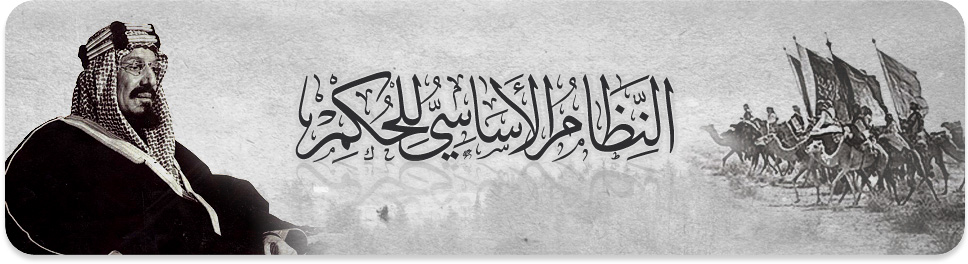 النِّظَامُ الأَسَاسِيُّ لِلحُكِمْ